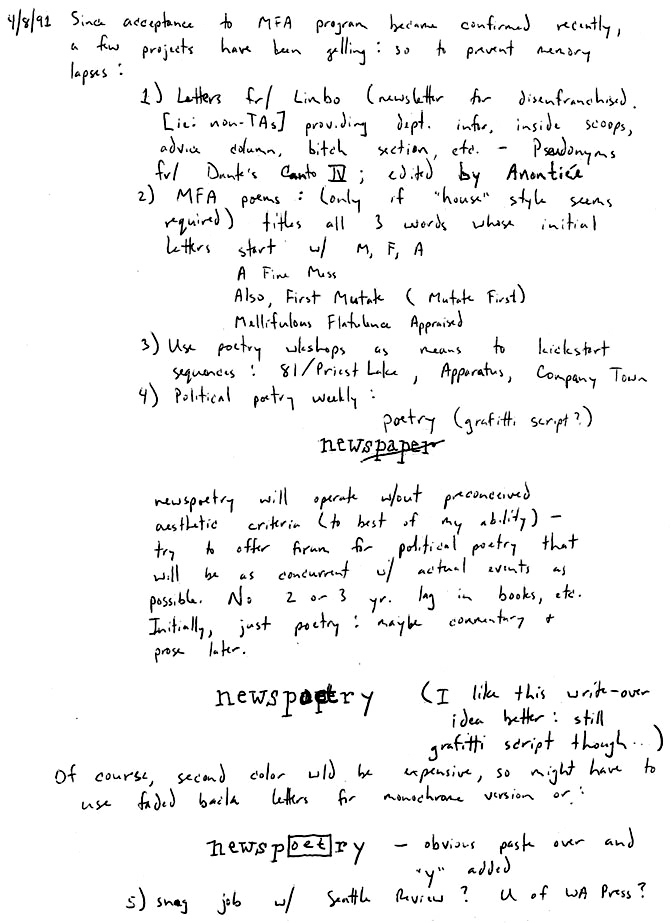 4/8/91 Since acceptance to MFA program became confirmed recently,
a few projects have been gelling: so to prevent memory
lapses:
1) Letters fr/ Limbo (newsletter for disenfranchised
[ie: non-TAs] providing dept. infor, inside scoops,
advice column, bitch section, etc. - Pseudonyms
fr/ Dante's Canto IV; edited by Anontiée
2) MFA poems: (only if "house" style seems
required) titles all 3 words whose initial
letters start w/ M, F, A
A Fine Mess
Also, First Mutate (Mutate First)
Mellifulous Flatulence Appraised
3) Use poetry wkshops as means to kickstart
sequences: 81/Priest Lake, Apparatus, Company Town
4) Political poetry weekly:
poetry (grafitti script?)
newspaper
newspoetry will operate w/out preconceived
aesthetic criteria (to best of my ability) -
try to offer forum for political poetry that
will be as concurrent w/ actual events as
possible. No 2 or 3 yr. lag in books, etc.
Initially, just poetry: maybe commentary +
prose later.
newspoetry (I like this write-over
idea better: still
grafitti script though...)
Of course, second color wld be expensive, so might have to
use faded back letters for monochrome version or:
newspoetry - obvious paste over and
"y" added
5) snag job w/ Seattle Review? U of WA Press?